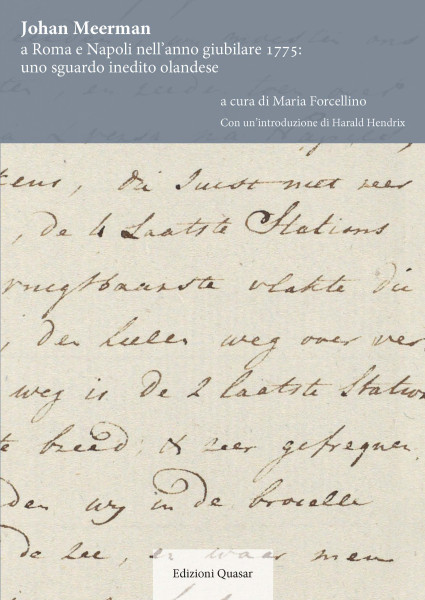 Johan Meerman
a Roma e Napoli nell'anno giubilare 1775:
uno sguardo inedito olandese
a cura di Maria Forcellino
Con un'introduzione di Harald Hendrix
die juist met zeer
, de 4 laatste Stations
vlakte die
weg over ver
weg is de 2 laatste Station
te breed, & zeer
den wy in de
de Zee, en waar men
Edizioni Quasar